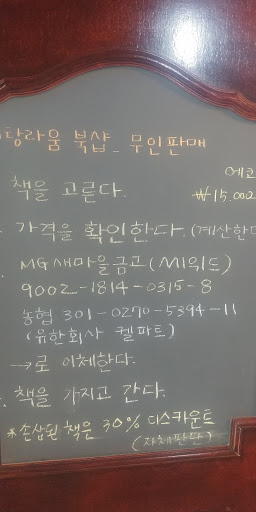 탕라움 북샵 _ 무인판매
에코
책을 고른다.
₩15.000
가격을 확인한다. (계산한다
MG새마을금고(
9002-1814-0315-8
농협 301-0270-5394-11
(유한회사 켈파트)
→로 이체한다.
책을 가지고 간다.
※손상된 책은 30% 디스카운트
(자체판단)